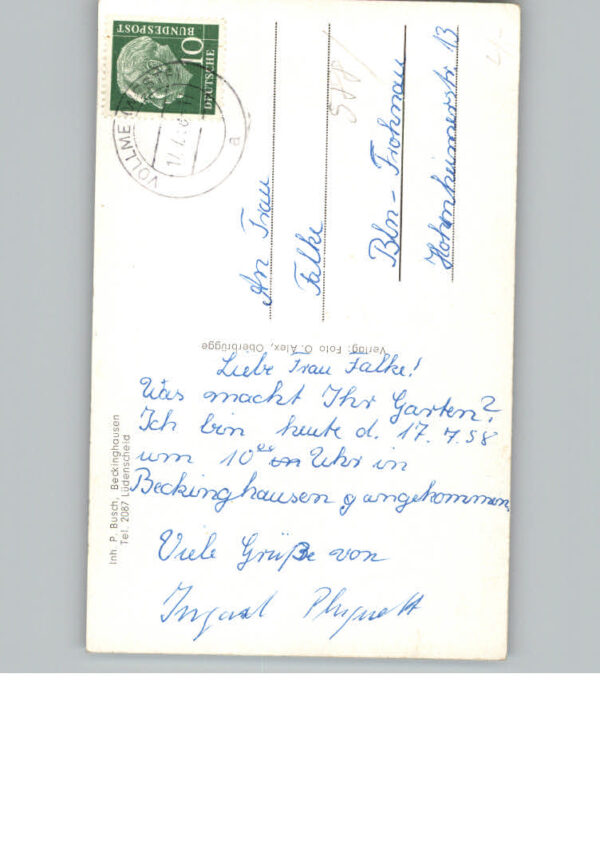 DEUTSCHE
BUNDESPOST
10
VOLLME
a
An Frau
Falke
Bln - Frohnau
Hohenheimerstr. 13
Verlag: Foto O. Alex, Oberbrügge
Inh. P. Busch, Beckinghausen
Tel. 2087 Lüdenscheid
Liebe Frau Falke!
Was macht Ihr Garten?
Ich bin heute d. 17.7.58
um 10 Uhr in
Beckinghausen angekommen.
Viele Grüße von